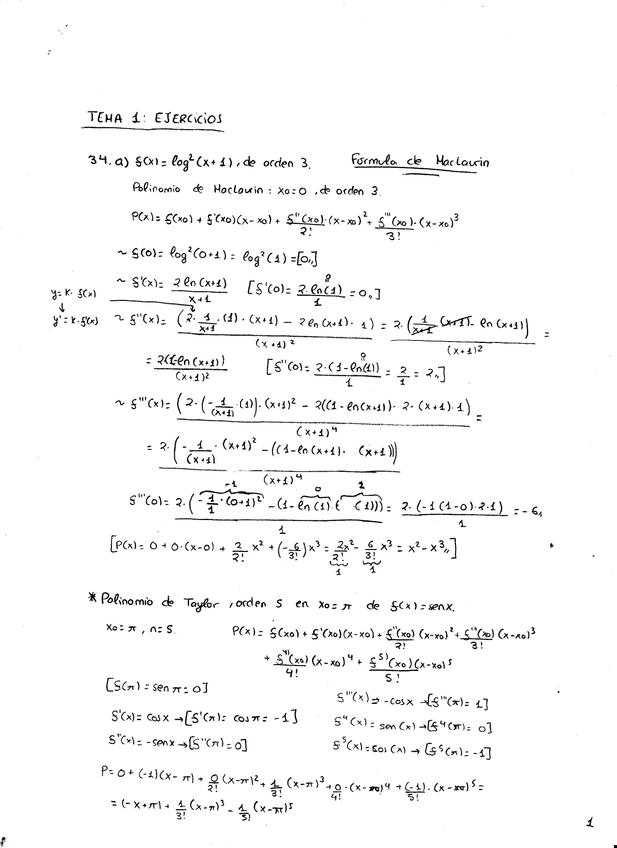 TEMA 1: EJERCICIOS
34. a) f(x) = log²(x+1), de orden 3. Fórmula de Maclaurin
Polinomio de Maclaurin: x0=0, de orden 3.
P(x) = f(x0) + f'(x0)(x-x0) + f''(x0)/2! · (x-x0)² + f'''(x0)/3! · (x-x0)³
~ f(0) = log²(0+1) = log²(1) = [0,,]
~ f'(x) = 2 ln(x+1) / x+1 [f'(0) = 2·ln(1) / 1 = 0,,]
y = k·f(x)
↓
y' = k·f'(x)
~ f''(x) = (2· 1/x+1 ·(1)·(x+1) - 2 ln(x+1)·1) / (x+1)² = 2·(1/x+1 (x+1) - ln(x+1)) / (x+1)² =
= 2(1-ln(x+1)) / (x+1)² [f''(0) = 2·(1-ln(1)) / 1 = 2/1 = 2,,]
~ f'''(x) = (2·(-1/(x+1) ·(1))·(x+1)² - 2((1-ln(x+1))·2·(x+1)·1) / (x+1)⁴ =
= 2·(-1/(x+1) ·(x+1)² - ((1-ln(x+1)· (x+1))) / (x+1)⁴
f'''(0) = 2·(-1/1 ·(0+1)² - (1-ln(1)·( (1))) / 1 = 2·(-1(1-0)·2·1) / 1 = -6,,
[P(x) = 0 + 0·(x-0) + 2/2! x² + (-6/3!) x³ = 2x²/2! - 6/3! x³ = x² - x³,,]
* Polinomio de Taylor, orden 5 en x0=π de f(x)=senx.
x0=π, n=5. P(x) = f(x0) + f'(x0)(x-x0) + f''(x0)/2! (x-x0)² + f'''(x0)/3! (x-x0)³
+ f⁴⁾(x0)/4! (x-x0)⁴ + f⁵⁾(x0)/5! (x-x0)⁵
[f(π) = sen π = 0] f'''(x) = -cosx → [f'''(π) = 1]
f'(x) = cosx → [f'(π) = cos π = -1] f⁴(x) = sen(x) → [f⁴(π) = 0]
f''(x) = -senx → [f''(π) = 0] f⁵(x) = cos(x) → [f⁵(π) = -1]
P = 0 + (-1)(x-π) + 0/2! (x-π)² + 1/3! (x-π)³ + 0/4! ·(x-π)⁴ + (-1)/5! ·(x-π)⁵ =
= (-x+π) + 1/3! (x-π)³ - 1/5! (x-π)⁵
1